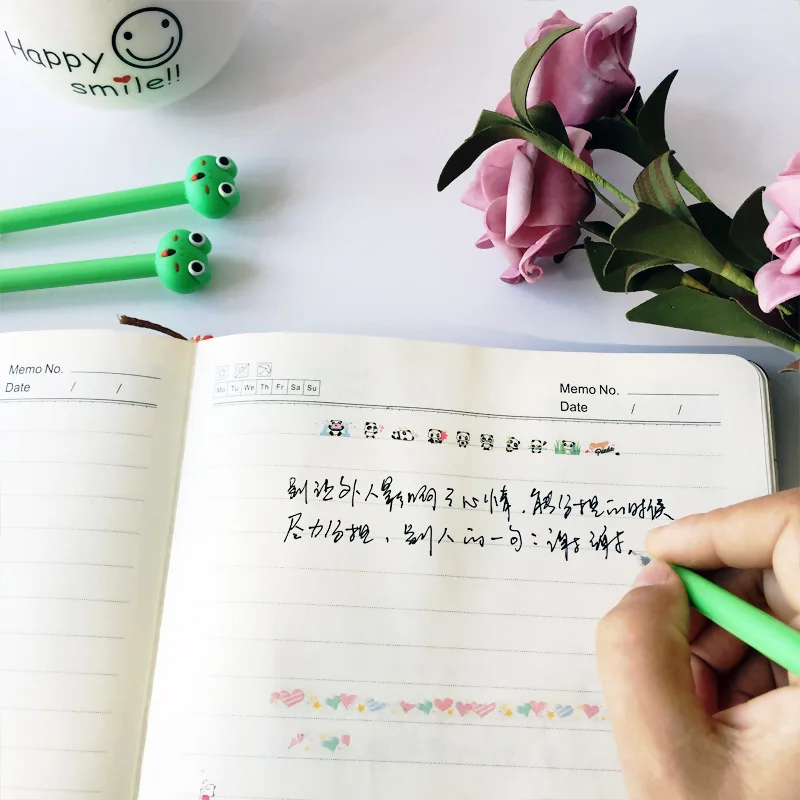 Happy
smile!!
Memo No.
Date / /
Mo Tu We Th Fr Sa Su
Memo No.
Date / /
别让外人影响了心情,能分担的时候
尽力分担,别人的一句:谢谢谢。